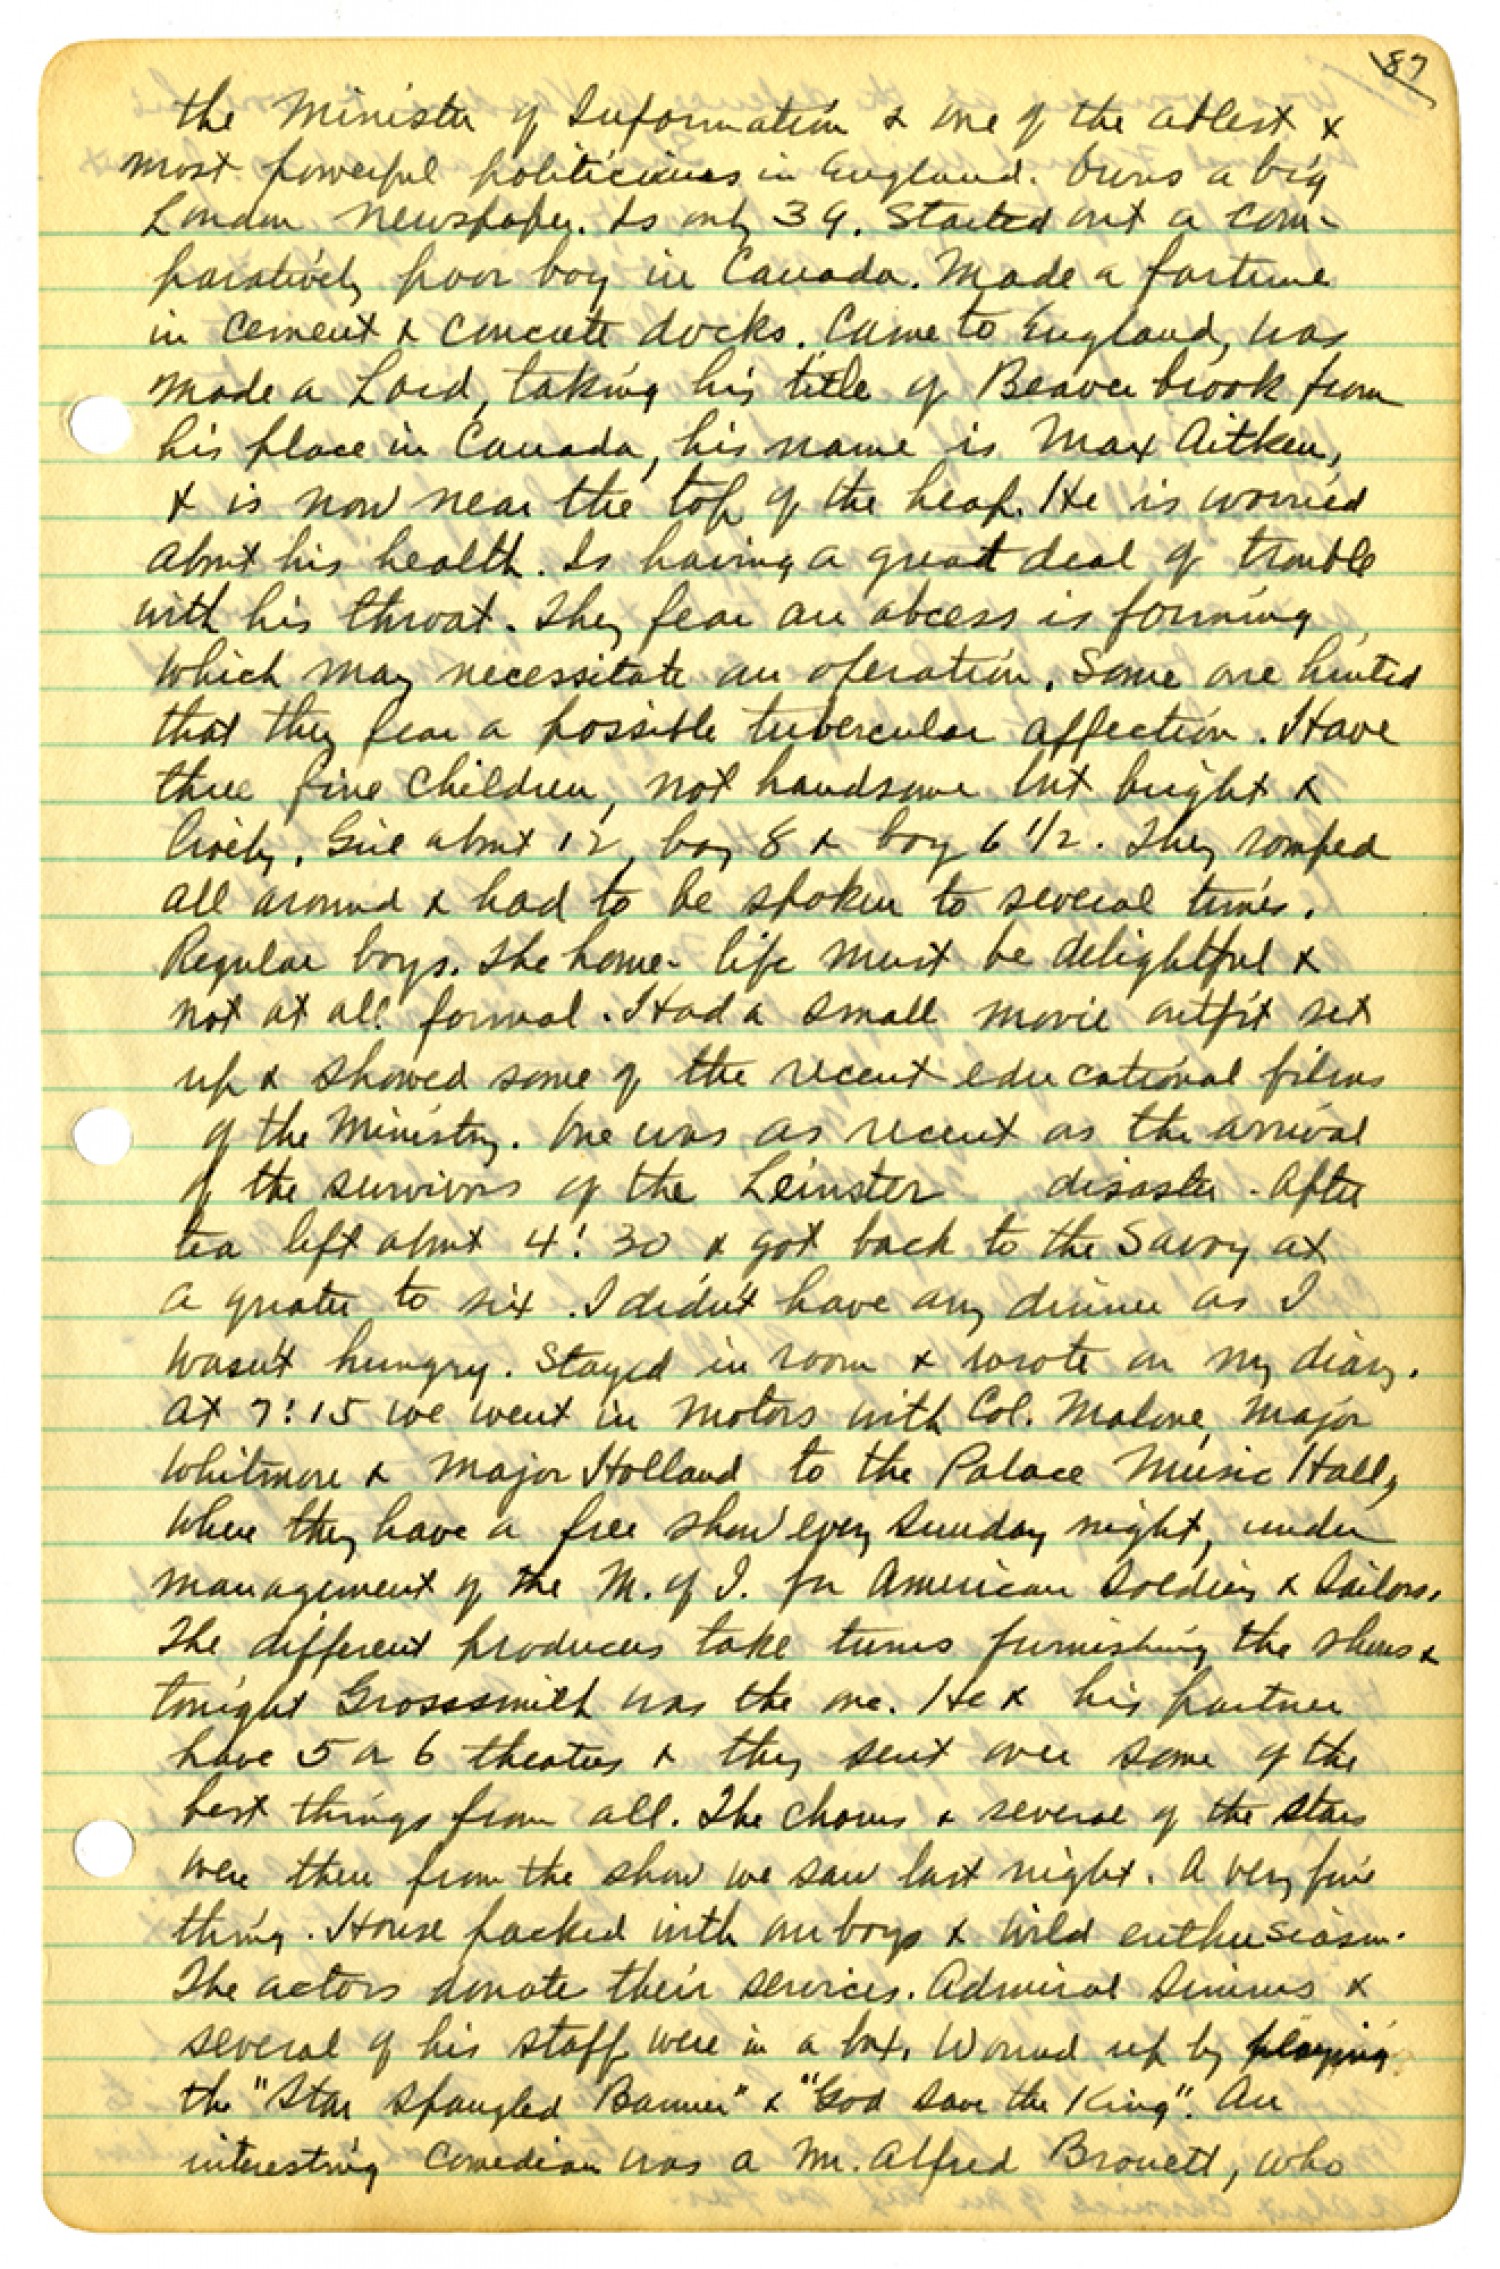 87
the Minister of Information & one of the ablest &
most powerful politicians in England. Owns a big
London newspaper. Is only 39. Started out a com-
paratively poor boy in Canada. Made a fortune
in cement & concrete docks. Came to England, was
made a Lord, taking his title of Beaver brook from
his place in Canada, his name is Max Aitken,
& is now near the top of the heap. He is worried
about his health. Is having a great deal of trouble
with his throat. They fear an abcess is forming
which may necessitate an operation. Some one hinted
that they fear a possible tubercular affection. Have
three fine children, not handsome but bright &
lively. Girl about 12, boy 8 & boy 6 1/2. They romped
all around & had to be spoken to several times.
Regular boys. The home-life must be delightful &
not at all formal. Had a small movie outfit set
up & showed some of the recent educational films
of the Ministry. One was as recent as the arrival
of the survivors of the Leinster disaster. After
tea left about 4:30 & got back to the Savoy at
a quater to six. I didn't have any dinner as I
wasn't hungry. Stayed in room & wrote on my diary.
At 7:15 we went in motors with Col. Malone, Major
Whitmore & Major Holland to the Palace Music Hall,
where they have a free show every Sunday night, under
management of the M. of I. for American Soldiers & Sailors.
The different producers take turns furnishing the shows &
tonight Grosssmith was the one. He & his partner
have 5 or 6 theatres & they sent over some of the
best things from all. The chorus & several of the stars
were there from the show we saw last night. A very fine
thing. House packed with our boys & wild enthusiasm.
The actors donate their services. Admiral Simms &
several of his staff were in a box. Wound up by playing
the "Star Spangled Banner" & "God Save the King". An
interesting comedian was a Mr. Alfred Browett, who